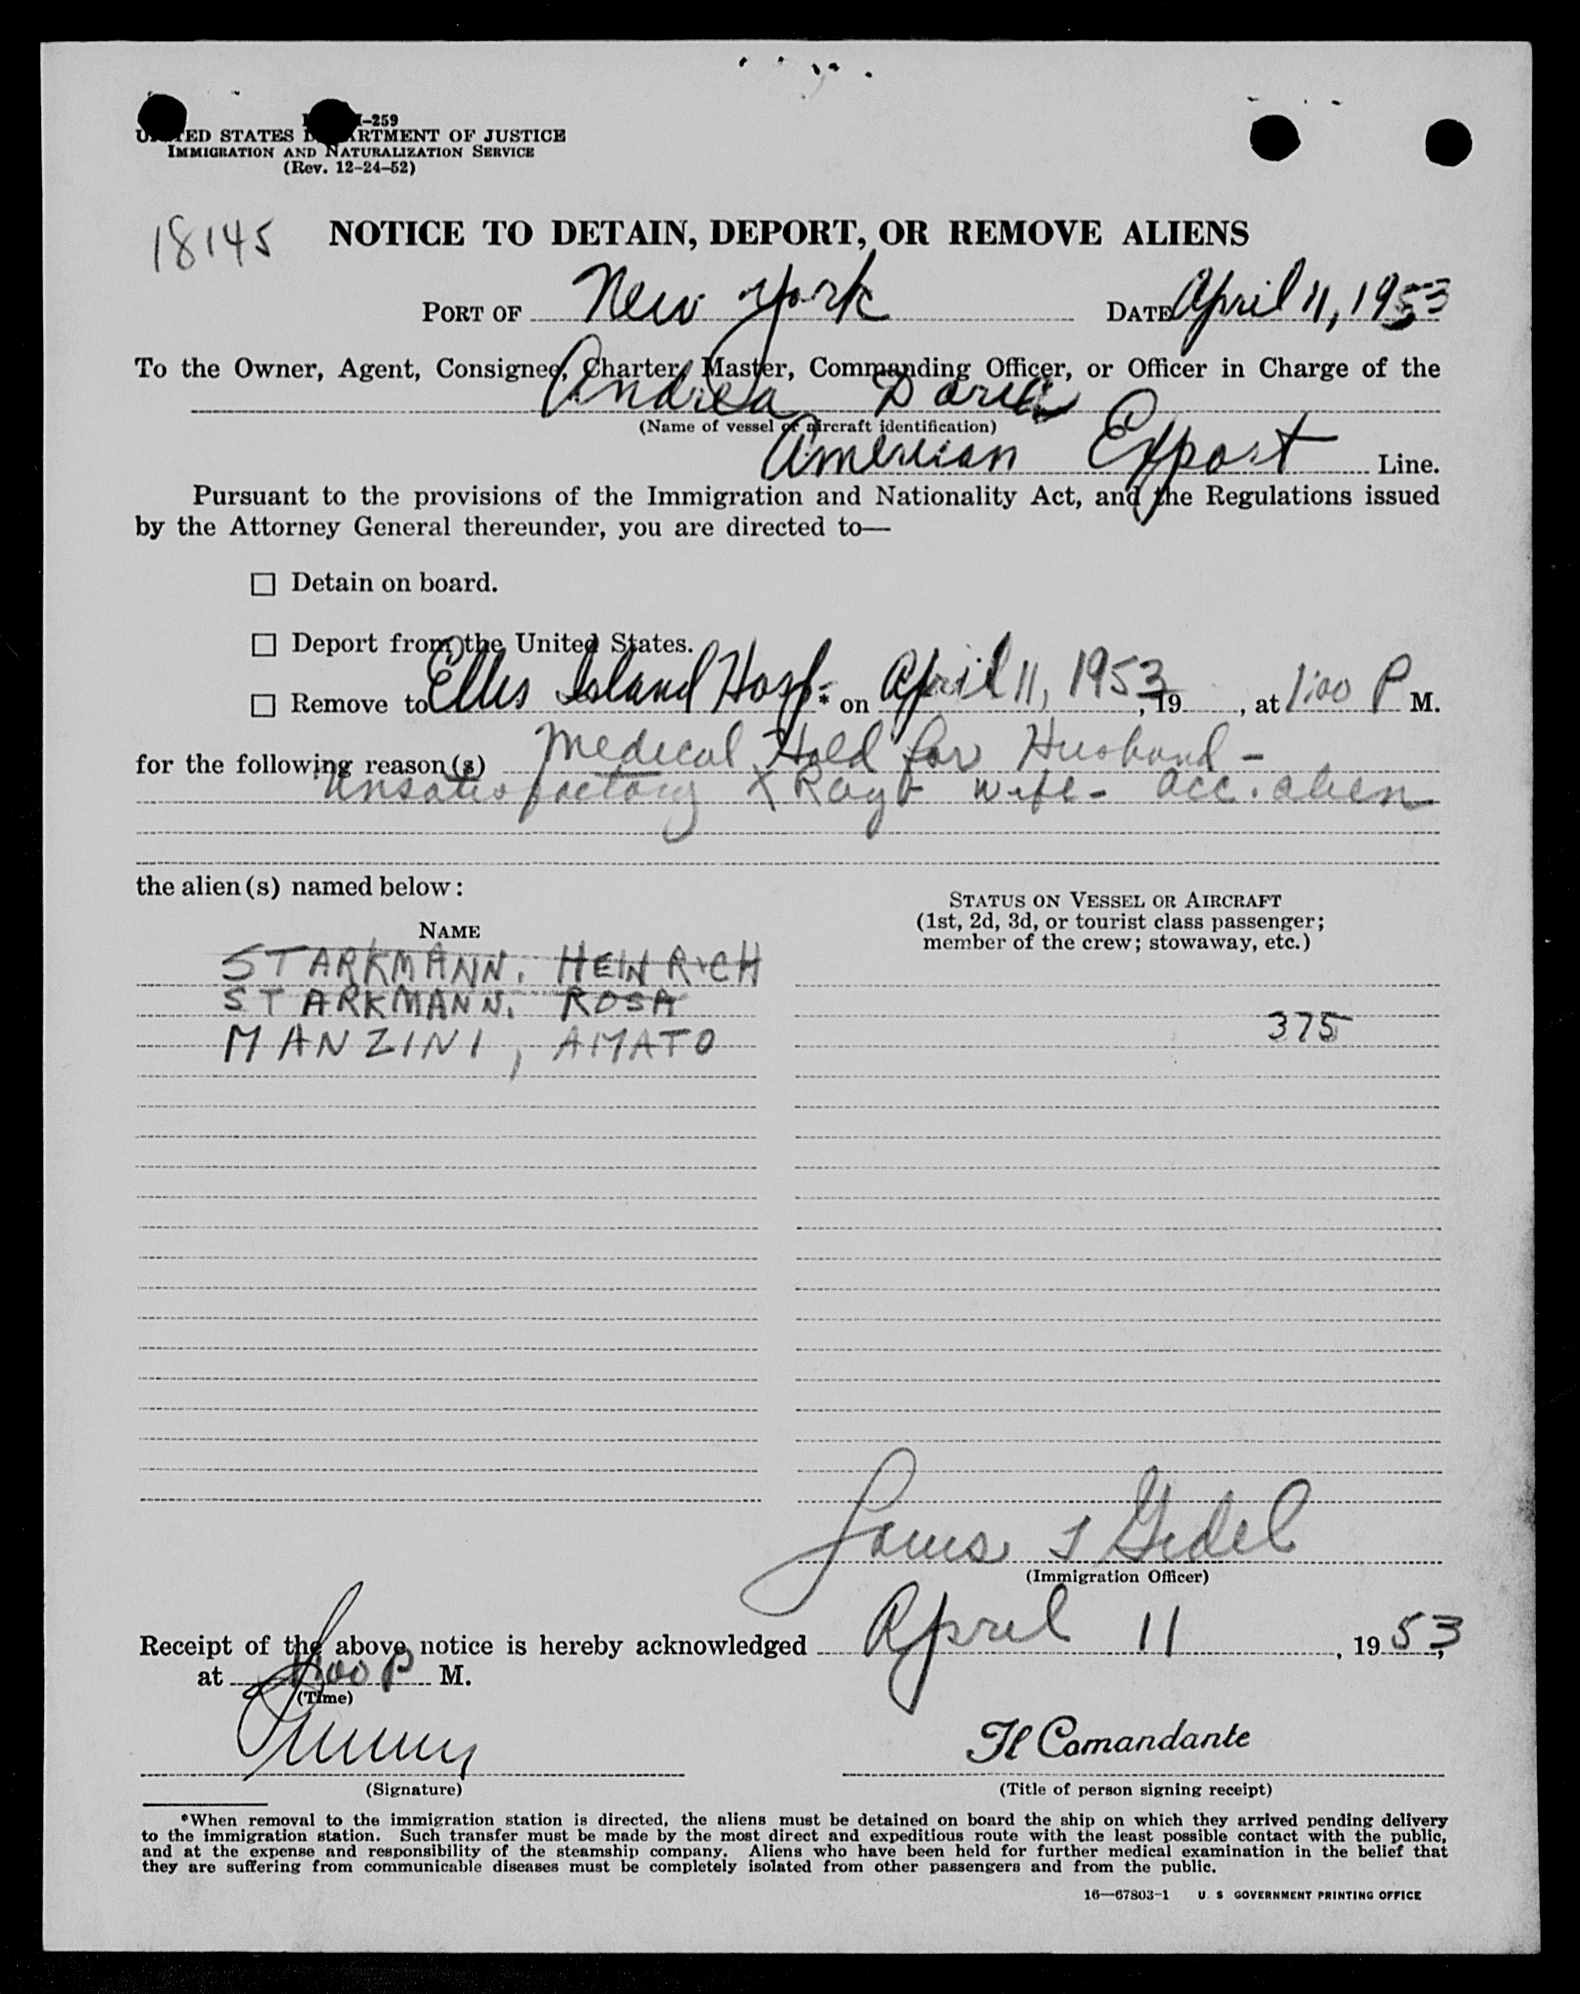 I-259
UNITED STATES DEPARTMENT OF JUSTICE
IMMIGRATION AND NATURALIZATION SERVICE
(Rev. 12-24-52)
18145
NOTICE TO DETAIN, DEPORT, OR REMOVE ALIENS
PORT OF New York DATE April 11, 1953
To the Owner, Agent, Consignee, Charter, Master, Commanding Officer, or Officer in Charge of the
Andrea Doria
(Name of vessel or aircraft identification)
American Export Line.
Pursuant to the provisions of the Immigration and Nationality Act, and the Regulations issued
by the Attorney General thereunder, you are directed to—
☐ Detain on board.
☐ Deport from the United States.
☐ Remove to Ellis Island Hosp.* on April 11, 1953, 19 , at 1:00 P M.
for the following reason(s) Medical Hold for Husband -
Unsatisfactory X Ray wife - acc. alien
the alien(s) named below:
STATUS ON VESSEL OR AIRCRAFT
(1st, 2d, 3d, or tourist class passenger;
member of the crew; stowaway, etc.)
NAME
STARKMANN, HEINRICH
STARKMANN, ROSA
MANZINI, AMATO 375
Louis
(Immigration Officer)
Receipt of the above notice is hereby acknowledged April 11, 1953,
at 1:00 P M.
(Time)
Il Comandante
(Signature) (Title of person signing receipt)
*When removal to the immigration station is directed, the aliens must be detained on board the ship on which they arrived pending delivery
to the immigration station. Such transfer must be made by the most direct and expeditious route with the least possible contact with the public,
and at the expense and responsibility of the steamship company. Aliens who have been held for further medical examination in the belief that
they are suffering from communicable diseases must be completely isolated from other passengers and from the public.
16—67803-1 U S GOVERNMENT PRINTING OFFICE